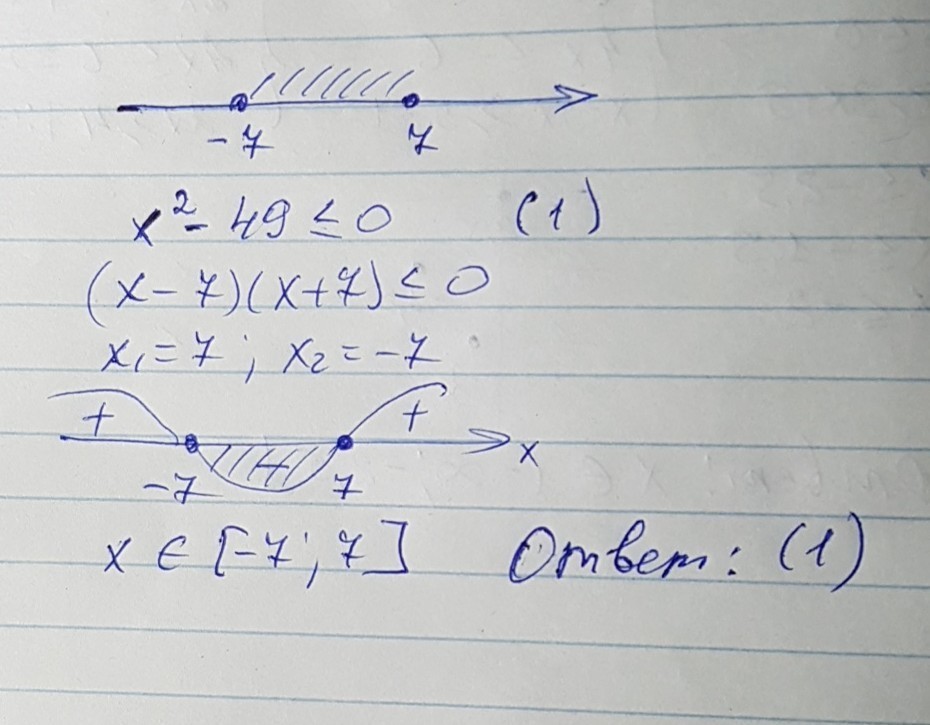 -7 7
x² - 49 ≤ 0 (1)
(x-7)(x+7) ≤ 0
x₁ = 7 ; x₂ = -7
+ - +
-7 7 x
x ∈ [-7; 7] Ответ: (1)